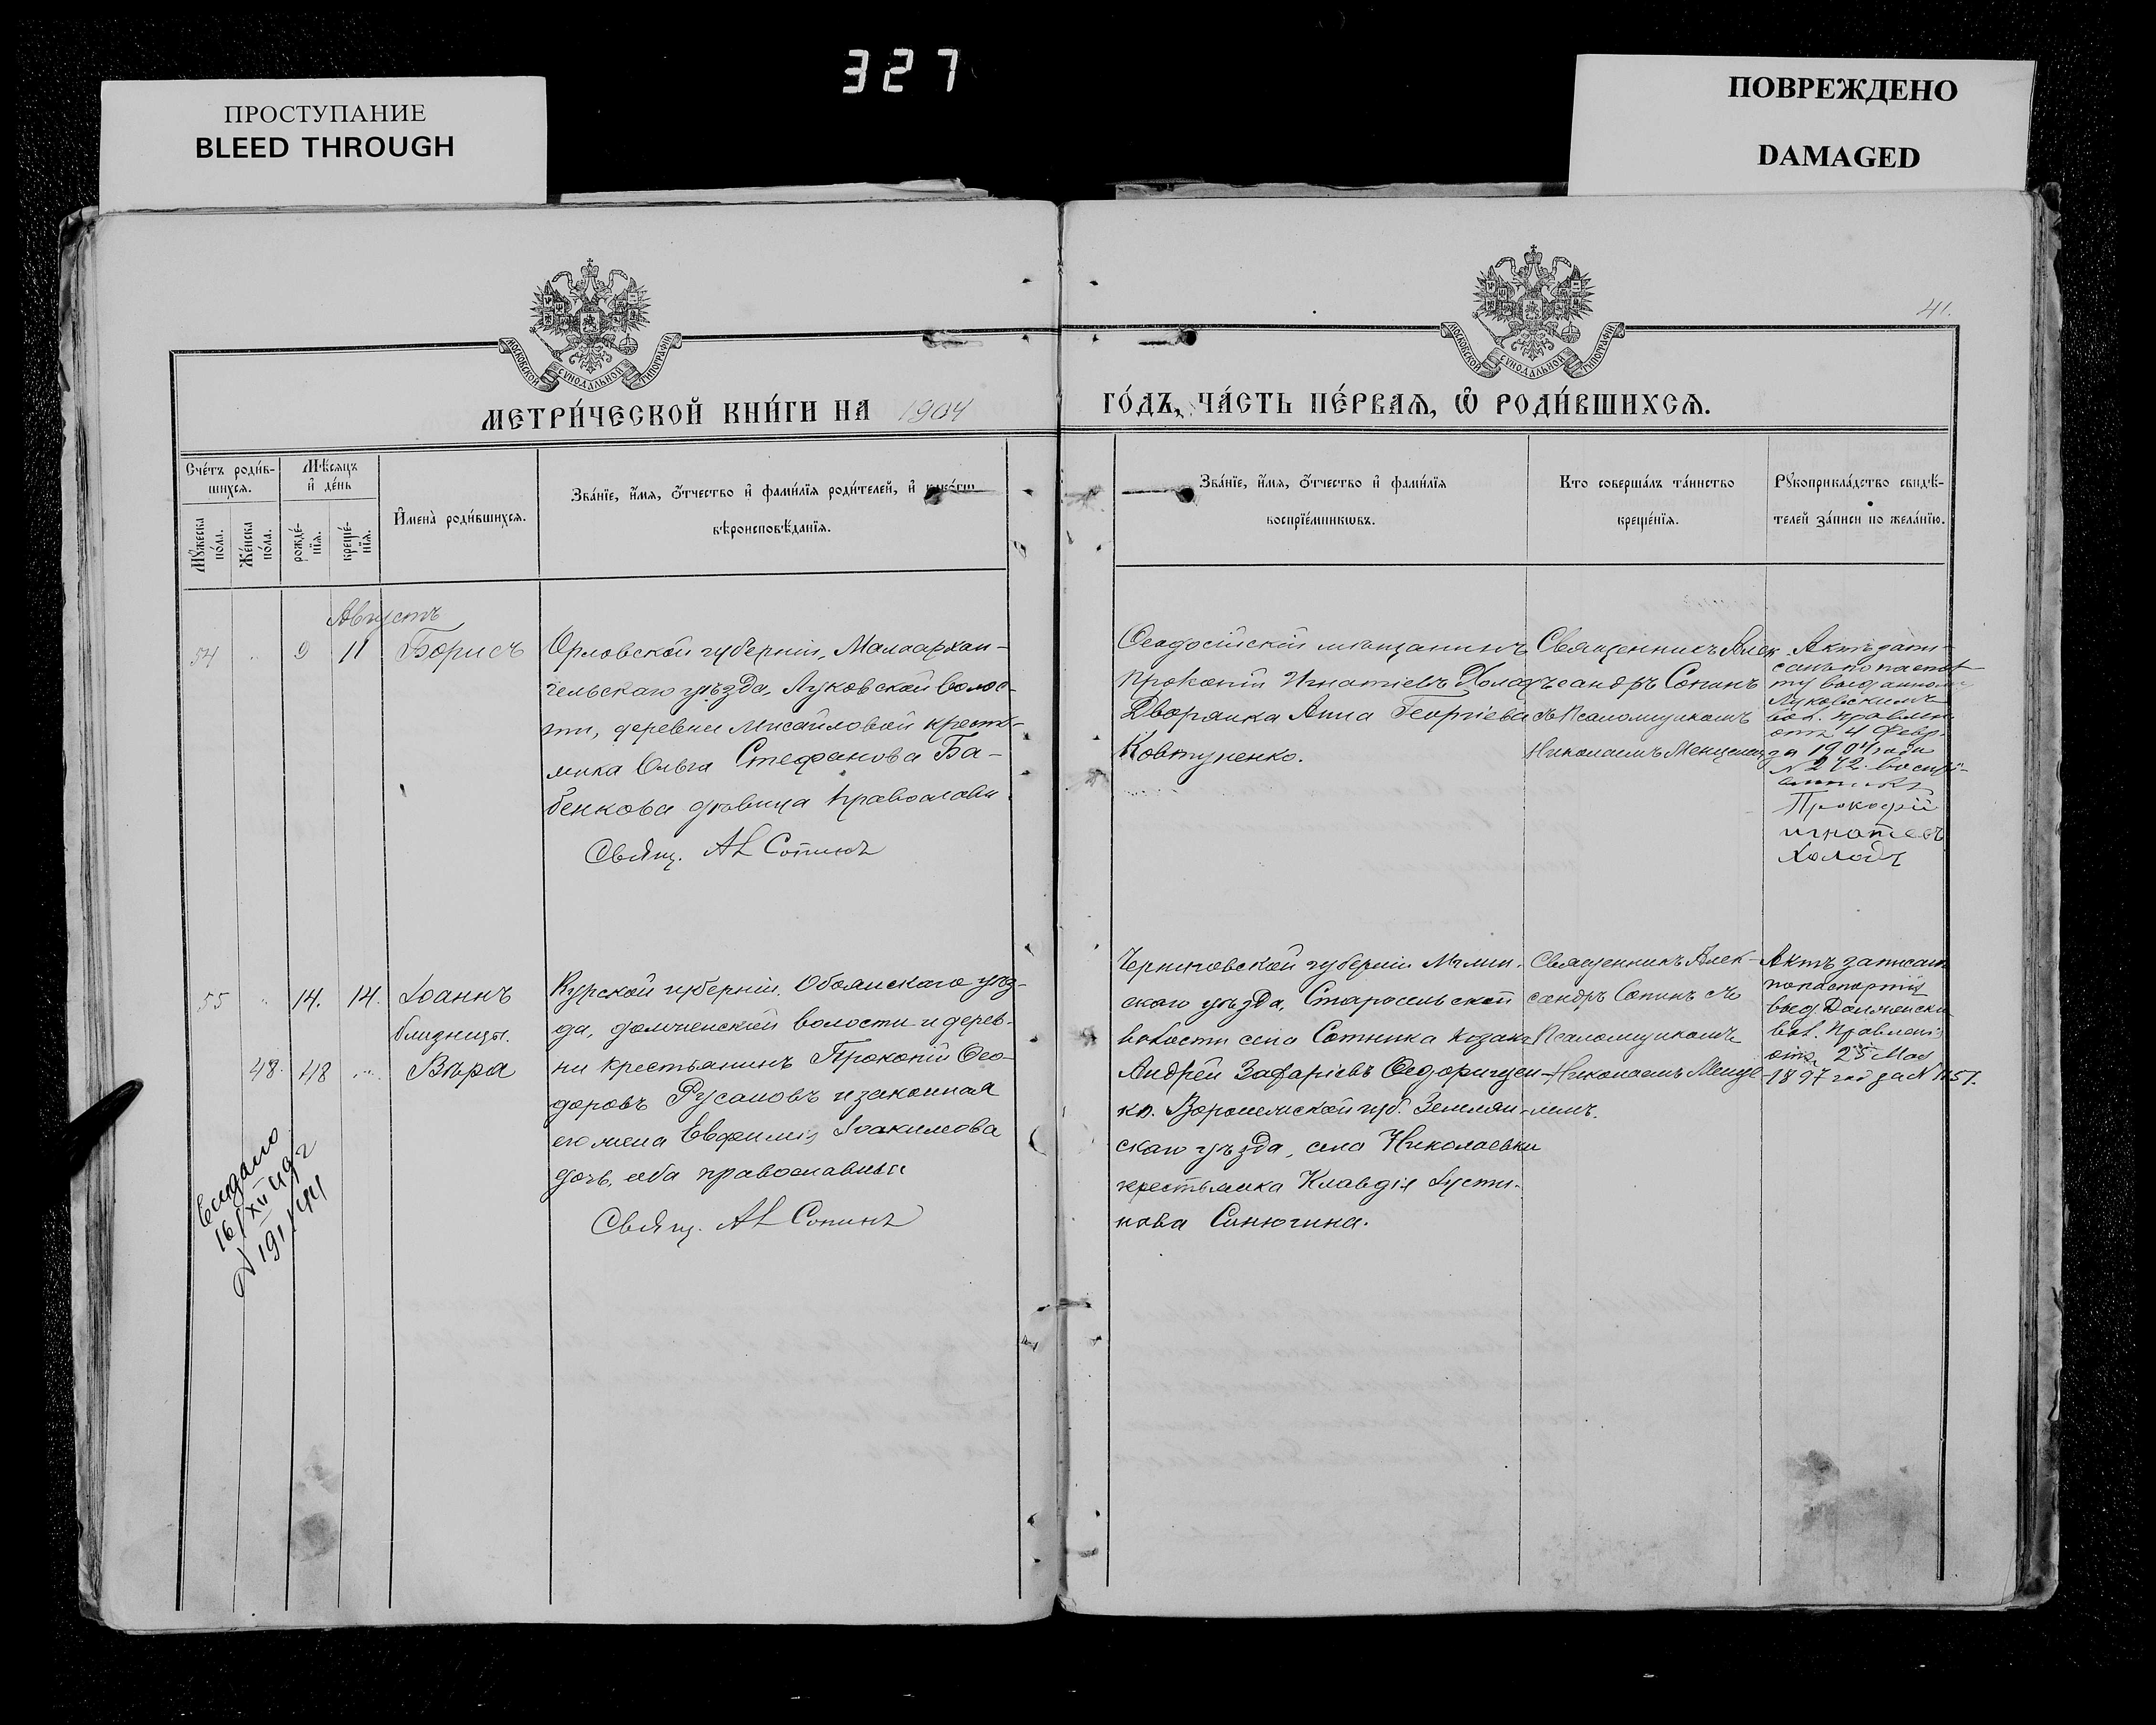 327
ПРОСТУПАНИЕ
BLEED THROUGH
ПОВРЕЖДЕНО
DAMAGED
41.
МОСКОВСКОЙ СѴНОДАЛЬНОЙ ТИПОГРАФІИ
МОСКОВСКОЙ СѴНОДАЛЬНОЙ ТИПОГРАФІИ
МЕТРИ́ЧЕСКОЙ КНИ́ГИ НА 1904
ГО́ДЪ, ЧА́СТЬ ПЕ́РВАѦ, Ѽ РОДИ́ВШИХСѦ.
Сче́тъ роди́в-
шихсѧ.
Мѣ́сѧцъ
и҆ де́нь
Мꙋ́жеска
по́ла.
Же́нска
по́ла.
рожде́-
нїѧ.
креще́-
нїѧ.
И҆мена̀ роди́вшихсѧ.
Зва́нїе, и҆́мѧ, ѻ҆́тчество и҆ фами́лїѧ роди́телей, и҆ како́гѡ
вѣроисповѣ́данїѧ.
Зва́нїе, и҆́мѧ, ѻ҆́тчество и҆ фами́лїѧ
воспрїе́мникѡвъ.
Кто соверша́лъ та́инство
креще́нїѧ.
Рꙋкоприкла́дство свидѣ́-
телей за́писи по жела́нїю.
Августъ
54 " 9 11 Борисъ
Орловской губерніи, Малоархан-
гельскаго уѣзда, Луковской волос-
ти, деревни Мисайловой кресть-
янка Ольга Стефанова Ба-
бенкова дѣвица православн.
Свящ. Ал Сопинъ
Ѳеодосійскій мѣщанинъ
Прокопій Игнатіевъ Холодъ
Дворянка Анна Георгіева
Ковтуненко.
Священникъ Алек
сандръ Сопинъ
съ Псаломщикомъ
Николаемъ Менцелемъ
Актъ запи-
санъ по паспор
ту выданному
Луковскимъ
вол. правлен.
отъ 4 Февр.
за 1904 года
№ 272. Воспрі-
емникъ
Прокофій
игнатевъ
Холодъ
55 " 14. 14. Іоаннъ
близнецы.
48. 48 " Вѣра
Курской губерніи, Обоянскаго уѣз-
да, долженской волости и дерев-
ни крестьянинъ Прокопій Ѳео-
доровъ Русановъ и законная
его жена Евфимія Іоакимова
дочь, оба православные
Свящ. Ал Сопинъ
Черниговской губерніи Мглин-
скаго уѣзда, Старосельской
волости села Сотника козакъ
Андрей Захаріевъ
Воронежской губ. Землян-
скаго уѣзда, села Николаевки
крестьянка Клавдія Іусти-
нова Синюгина.
Священникъ Алек-
сандръ Сопинъ съ
Псаломщикомъ
Николаемъ Менце-
лемъ.
Актъ записанъ
по паспорту
выд. Долженски
вол. Правлені
отъ 25 Мая
1897 год за № 1151.
Выдано
16/XII
№ 191